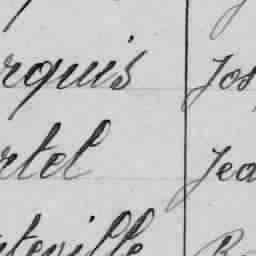 rquis Jos
rtel Jea
teville